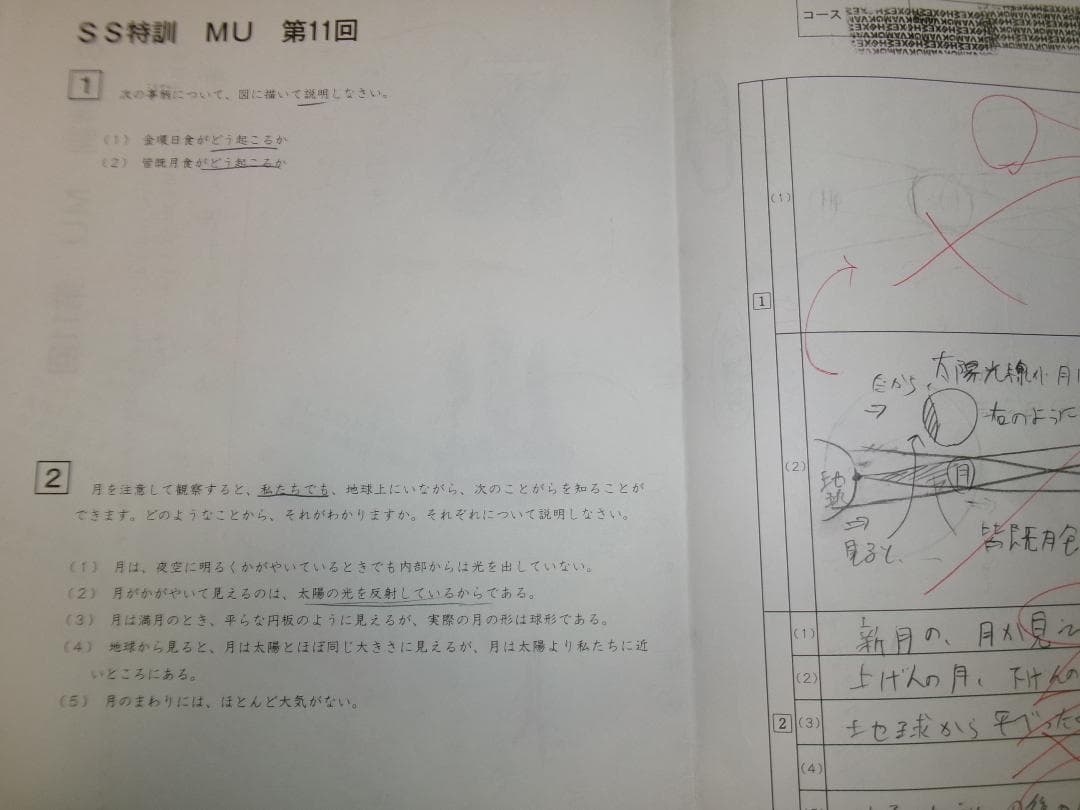 SS特訓 MU 第11回
1 次の事柄について、図に描いて説明しなさい。
(1) 金環日食がどう起こるか
(2) 皆既月食がどう起こるか
2 月を注意して観察すると、私たちでも、地球上にいながら、次のことがらを知ることが
できます。どのようなことから、それがわかりますか。それぞれについて説明しなさい。
(1) 月は、夜空に明るくかがやいているときでも内部からは光を出していない。
(2) 月がかがやいて見えるのは、太陽の光を反射しているからである。
(3) 月は満月のとき、平らな円板のように見えるが、実際の月の形は球形である。
(4) 地球から見ると、月は太陽とほぼ同じ大きさに見えるが、月は太陽より私たちに近
いところにある。
(5) 月のまわりには、ほとんど大気がない。
コース
1
(1)
(2)
だから、太陽光線が月に
右のように
地球
月
見ると、
皆既月食
2
(1) 新月の、月が見え
(2) 上げんの月、下げんの
(3) 地球から平べった
(4)